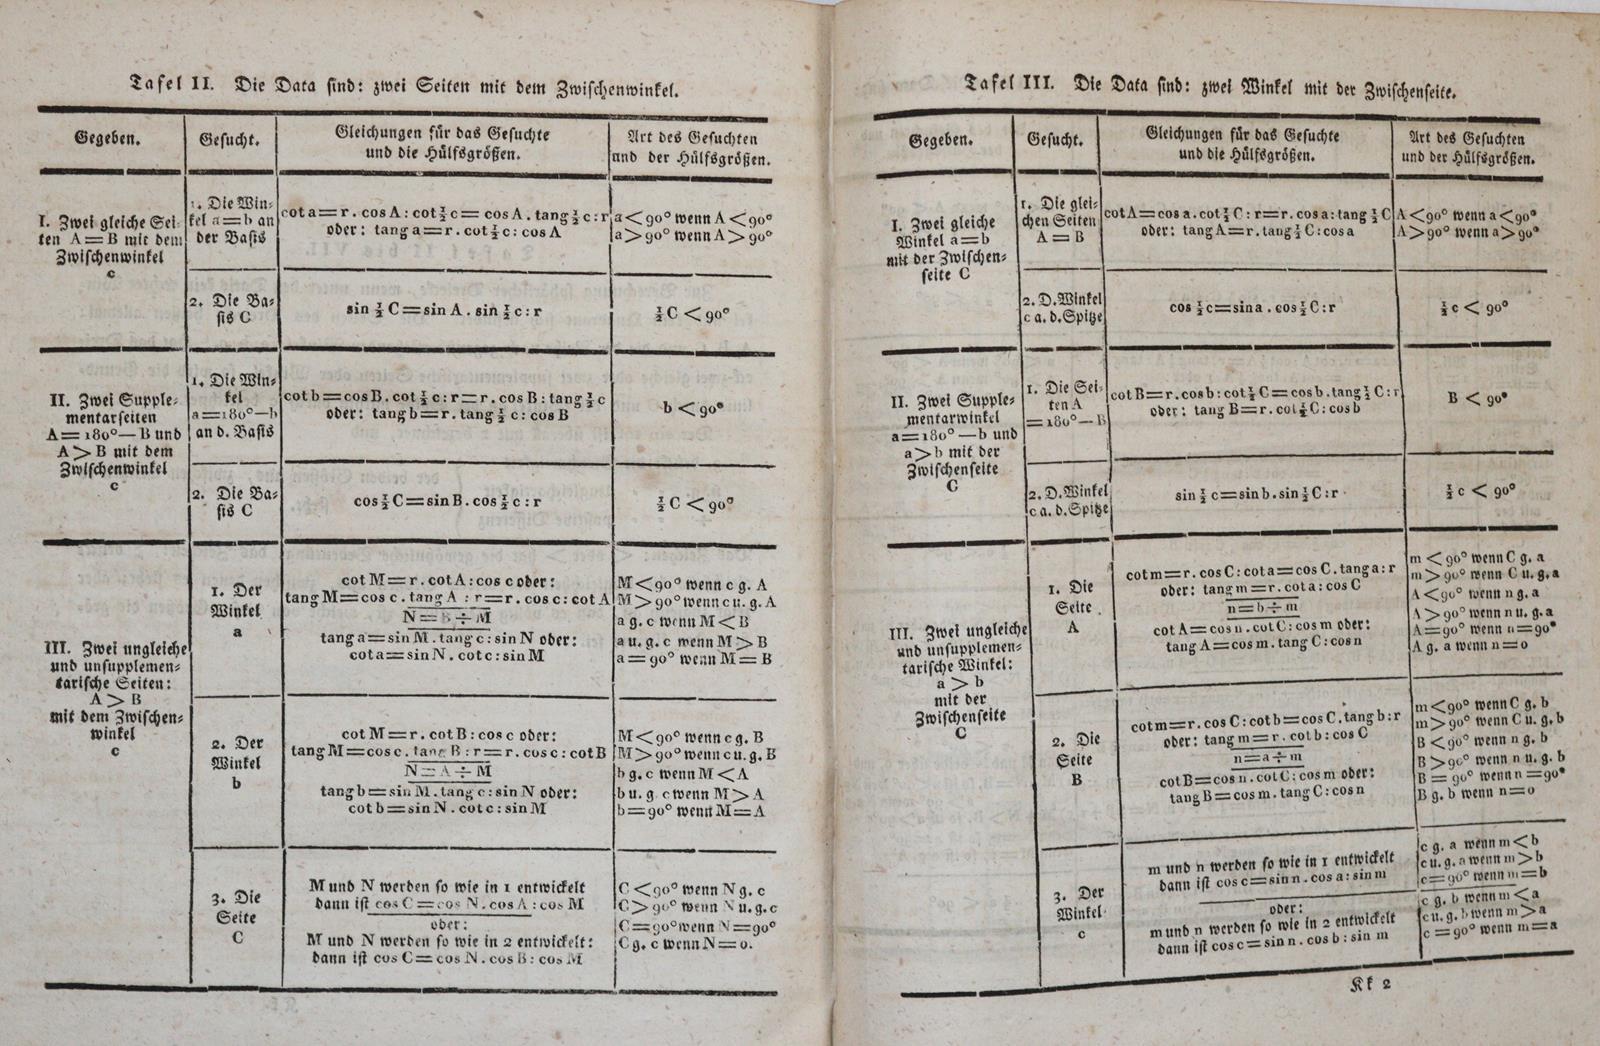 Tafel II. Die Data sind: zwei Seiten mit dem Zwischenwinkel.
Gegeben.
Gesucht.
Gleichungen für das Gesuchte
und die Hülfsgrößen.
Art des Gesuchten
und der Hülfsgrößen.
I. Zwei gleiche Sei-
ten A=B mit dem
Zwischenwinkel
c
1. Die Win-
kel a=b an
der Basis
cot a=r. cos A: cot ½ c= cos A. tang ½ c: r
oder: tang a=r. cot ½ c: cos A
a<90° wenn A<90°
a>90° wenn A>90°
2. Die Ba-
sis C
sin ½ C=sin A. sin ½ c: r
½ C<90°
II. Zwei Supple-
mentarseiten
A=180°—B und
A>B mit dem
Zwischenwinkel
c
1. Die Win-
kel
a=180°—b
an d. Basis
cot b=cos B. cot ½ c: r=r. cos B: tang ½ c
oder: tang b=r. tang ½ c: cos B
b<90°
2. Die Ba-
sis C
cos ½ C=sin B. cos ½ c: r
½ C<90°
III. Zwei ungleiche
und unsupplemen-
tarische Seiten:
A>B
mit dem Zwischen-
winkel
c
1. Der
Winkel
a
cot M=r. cot A: cos c oder:
tang M=cos c. tang A : r=r. cos c: cot A
N=B÷M
tang a=sin M. tang c: sin N oder:
cot a=sin N. cot c: sin M
M<90° wenn c g. A
M>90° wenn c u. g. A
a g. c wenn M<B
a u. g. c wenn M>B
a=90° wenn M=B
2. Der
Winkel
b
cot M=r. cot B: cos c oder:
tang M=cos c. tang B: r=r. cos c: cot B
N=A÷M
tang b=sin M. tang c: sin N oder:
cot b=sin N. cot c: sin M
M<90° wenn c g. B
M>90° wenn c u. g. B
b g. c wenn M<A
b u. g. c wenn M>A
b=90° wenn M=A
3. Die
Seite
C
M und N werden so wie in 1 entwickelt
dann ist cos C=cos N. cos A: cos M
oder:
M und N werden so wie in 2 entwickelt:
dann ist cos C=cos N. cos B: cos M
C<90° wenn N g. c
C>90° wenn N u. g. c
C=90° wenn N=90°
C g. c wenn N=0.
Tafel III. Die Data sind: zwei Winkel mit der Zwischenseite.
Gegeben.
Gesucht.
Gleichungen für das Gesuchte
und die Hülfsgrößen.
Art des Gesuchten
und der Hülfsgrößen.
I. Zwei gleiche
Winkel a=b
mit der Zwischen-
seite C
1. Die glei-
chen Seiten
A=B
cot A=cos a. cot ½ C: r=r. cos a: tang ½ C
oder: tang A=r. tang ½ C: cos a
A<90° wenn a<90°
A>90° wenn a>90°
2. D. Winkel
c a. d. Spitze
cos ½ c=sin a. cos ½ C: r
½ c<90°
II. Zwei Supple-
mentarwinkel
a=180°—b und
a>b mit der
Zwischenseite
C
1. Die Sei-
ten A
=180°—B
cot B=r. cos b: cot ½ C=cos b. tang ½ C: r
oder: tang B=r. cot ½ C: cos b
B<90°
2. D. Winkel
c a. d. Spitze
sin ½ c=sin b. sin ½ C: r
½ c<90°
III. Zwei ungleiche
und unsupplemen-
tarische Winkel:
a>b
mit der
Zwischenseite
C
1. Die
Seite
A
cot m=r. cos C: cot a=cos C. tang a: r
oder: tang m=r. cot a: cos C
n=b÷m
cot A=cos n. cot C: cos m oder:
tang A=cos m. tang C: cos n
m<90° wenn C g. a
m>90° wenn C u. g. a
A<90° wenn n g. a
A>90° wenn n u. g. a
A=90° wenn n=90°
A g. a wenn n=0
2. Die
Seite
B
cot m=r. cos C: cot b=cos C. tang b: r
oder: tang m=r. cot b: cos C
n=a÷m
cot B=cos n. cot C: cos m oder:
tang B=cos m. tang C: cos n
m<90° wenn C g. b
m>90° wenn C u. g. b
B<90° wenn n g. b
B>90° wenn n u. g. b
B=90° wenn n=90°
B g. b wenn n=0
3. Der
Winkel
c
m und n werden so wie in 1 entwickelt
dann ist cos c=sin n. cos a: sin m
oder:
m und n werden so wie in 2 entwickelt
dann ist cos c=sin n. cos b: sin m
c g. a wenn m<b
c u. g. a wenn m>b
c=90° wenn m=b
c g. b wenn m<a
c u. g. b wenn m>a
c=90° wenn m=a
Kk 2